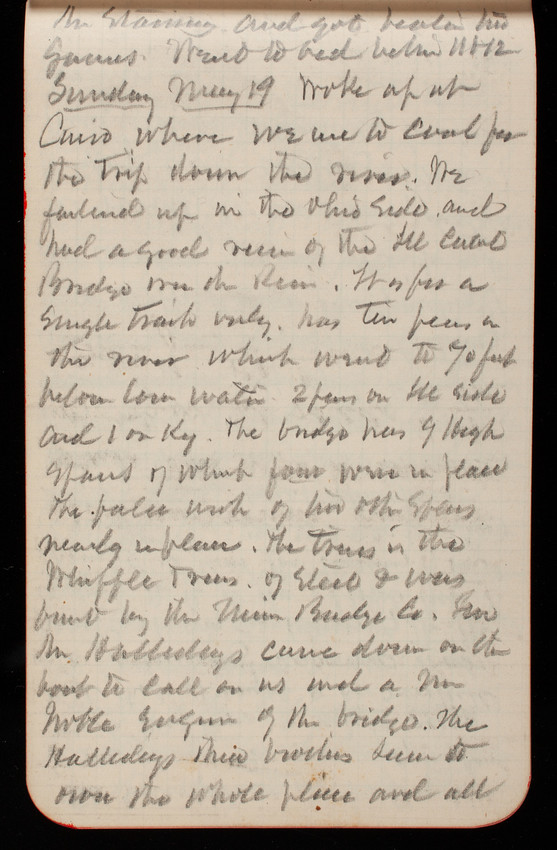 Mr Staning and got beaten two
Games. Went to bed betw 11 & 12
Sunday May 19 Woke up at
Cairo where we are to coal for
the trip down the river. We
up on the Ohio Side and
had a good view of the Ill Cent
Bridge over the River. It is for a
Single track only. has ten piers in
the river which went to 70 feet
below low water 2 piers on Ill Side
and 1 on Ky. The bridge has 9 High
Spans of which four were in place
the false work of two other Spans
nearly in place. The truss is the
Whipple Truss. of Steel & was
built by the Union Bridge Co. Two
Mr. Hallidays came down on the
boat to call on us and a Mr
Noble Engin of the bridge. The
Hallidays three brothers seem to
own the whole place and all